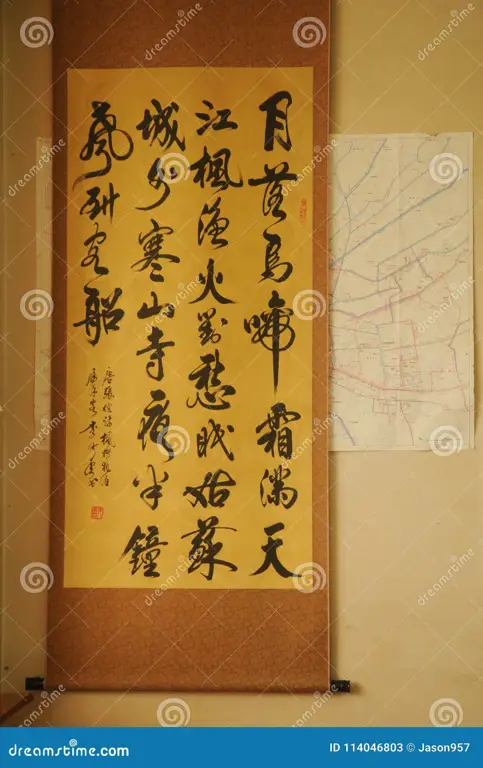 月落烏啼霜滿天
江楓漁火對愁眠姑蘇
城外寒山寺夜半鐘
聲到客船
唐張繼詩楓橋夜泊
dreamstime
dreamstime.com
ID 114046803 © Jason957